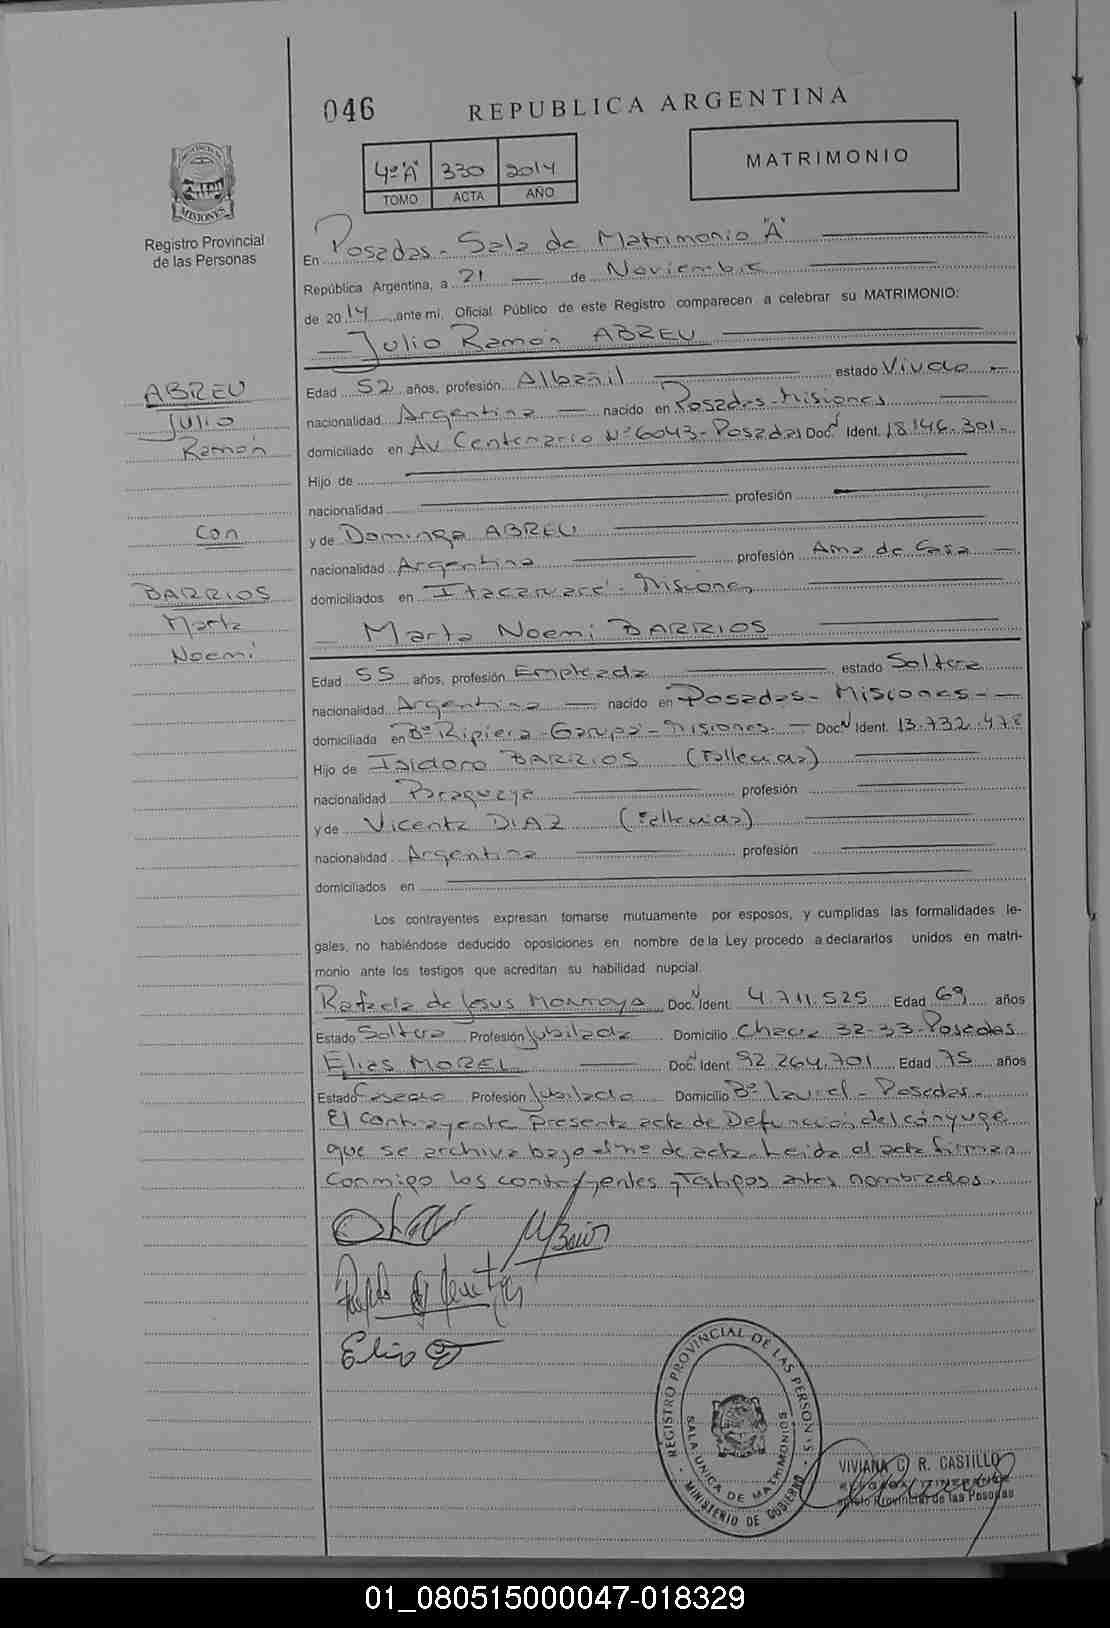 046
REPUBLICA ARGENTINA
4º "A" 330 2014
TOMO ACTA AÑO
MATRIMONIO
PROVINCIA DE
MISIONES
Registro Provincial
de las Personas
En Posadas - Sala de Matrimonio "A"
República Argentina, a 21 de Noviembre
de 2014 ante mi, Oficial Público de este Registro comparecen a celebrar su MATRIMONIO:
Julio Ramón ABREU
ABREU
Julio
Ramón
Con
BARRIOS
Marta
Noemi
Edad 52 años, profesión Albañil estado Viudo
nacionalidad Argentina nacido en Posadas - Misiones
domiciliado en Av Centenario Nº 6043 - Posadas Doc. N Ident. 18.146.301.-
Hijo de
nacionalidad profesión
y de Dominga ABREU
nacionalidad Argentina profesión Ama de Casa
domiciliados en Itacaruaré - Misiones
Marta Noemi BARRIOS
Edad 55 años, profesión Empleada estado Soltera
nacionalidad Argentina nacido en Posadas - Misiones -
domiciliada en Bº Ripiera - Garupá - Misiones Doc. N Ident. 13.732.478
Hijo de Isidoro BARRIOS (Fallecido)
nacionalidad Paraguaya profesión
y de Vicenta DIAZ (Fallecida)
nacionalidad Argentina profesión
domiciliados en
Los contrayentes expresan tomarse mutuamente por esposos, y cumplidas las formalidades le-
gales, no habiéndose deducido oposiciones en nombre de la Ley procedo a declararlos unidos en matri-
monio ante los testigos que acreditan su habilidad nupcial.
Rafaela de Jesus Doc. N Ident. 4.711.525 Edad 69 años
Estado Soltera Profesión Jubilada Domicilio Chacra 32-33-Posadas
Elias MOREL Doc. N Ident 92.264.701 Edad 75 años
Estado Casado Profesión Jubilado Domicilio Bº Laurel - Posadas.-
El contrayente presenta acta de Defuncion del cónyuge
que se archiva bajo el nº de acta. Leida el acta firman
conmigo los contrayentes y Testigos antes nombrados.
Elias
REGISTRO PROVINCIAL DE LAS PERSONAS
SALA UNICA DE MATRIMONIOS
MINISTERIO DE GOBIERNO
VIVIANA C. R. CASTILLO
Provincial de las Personas
01_080515000047-018329